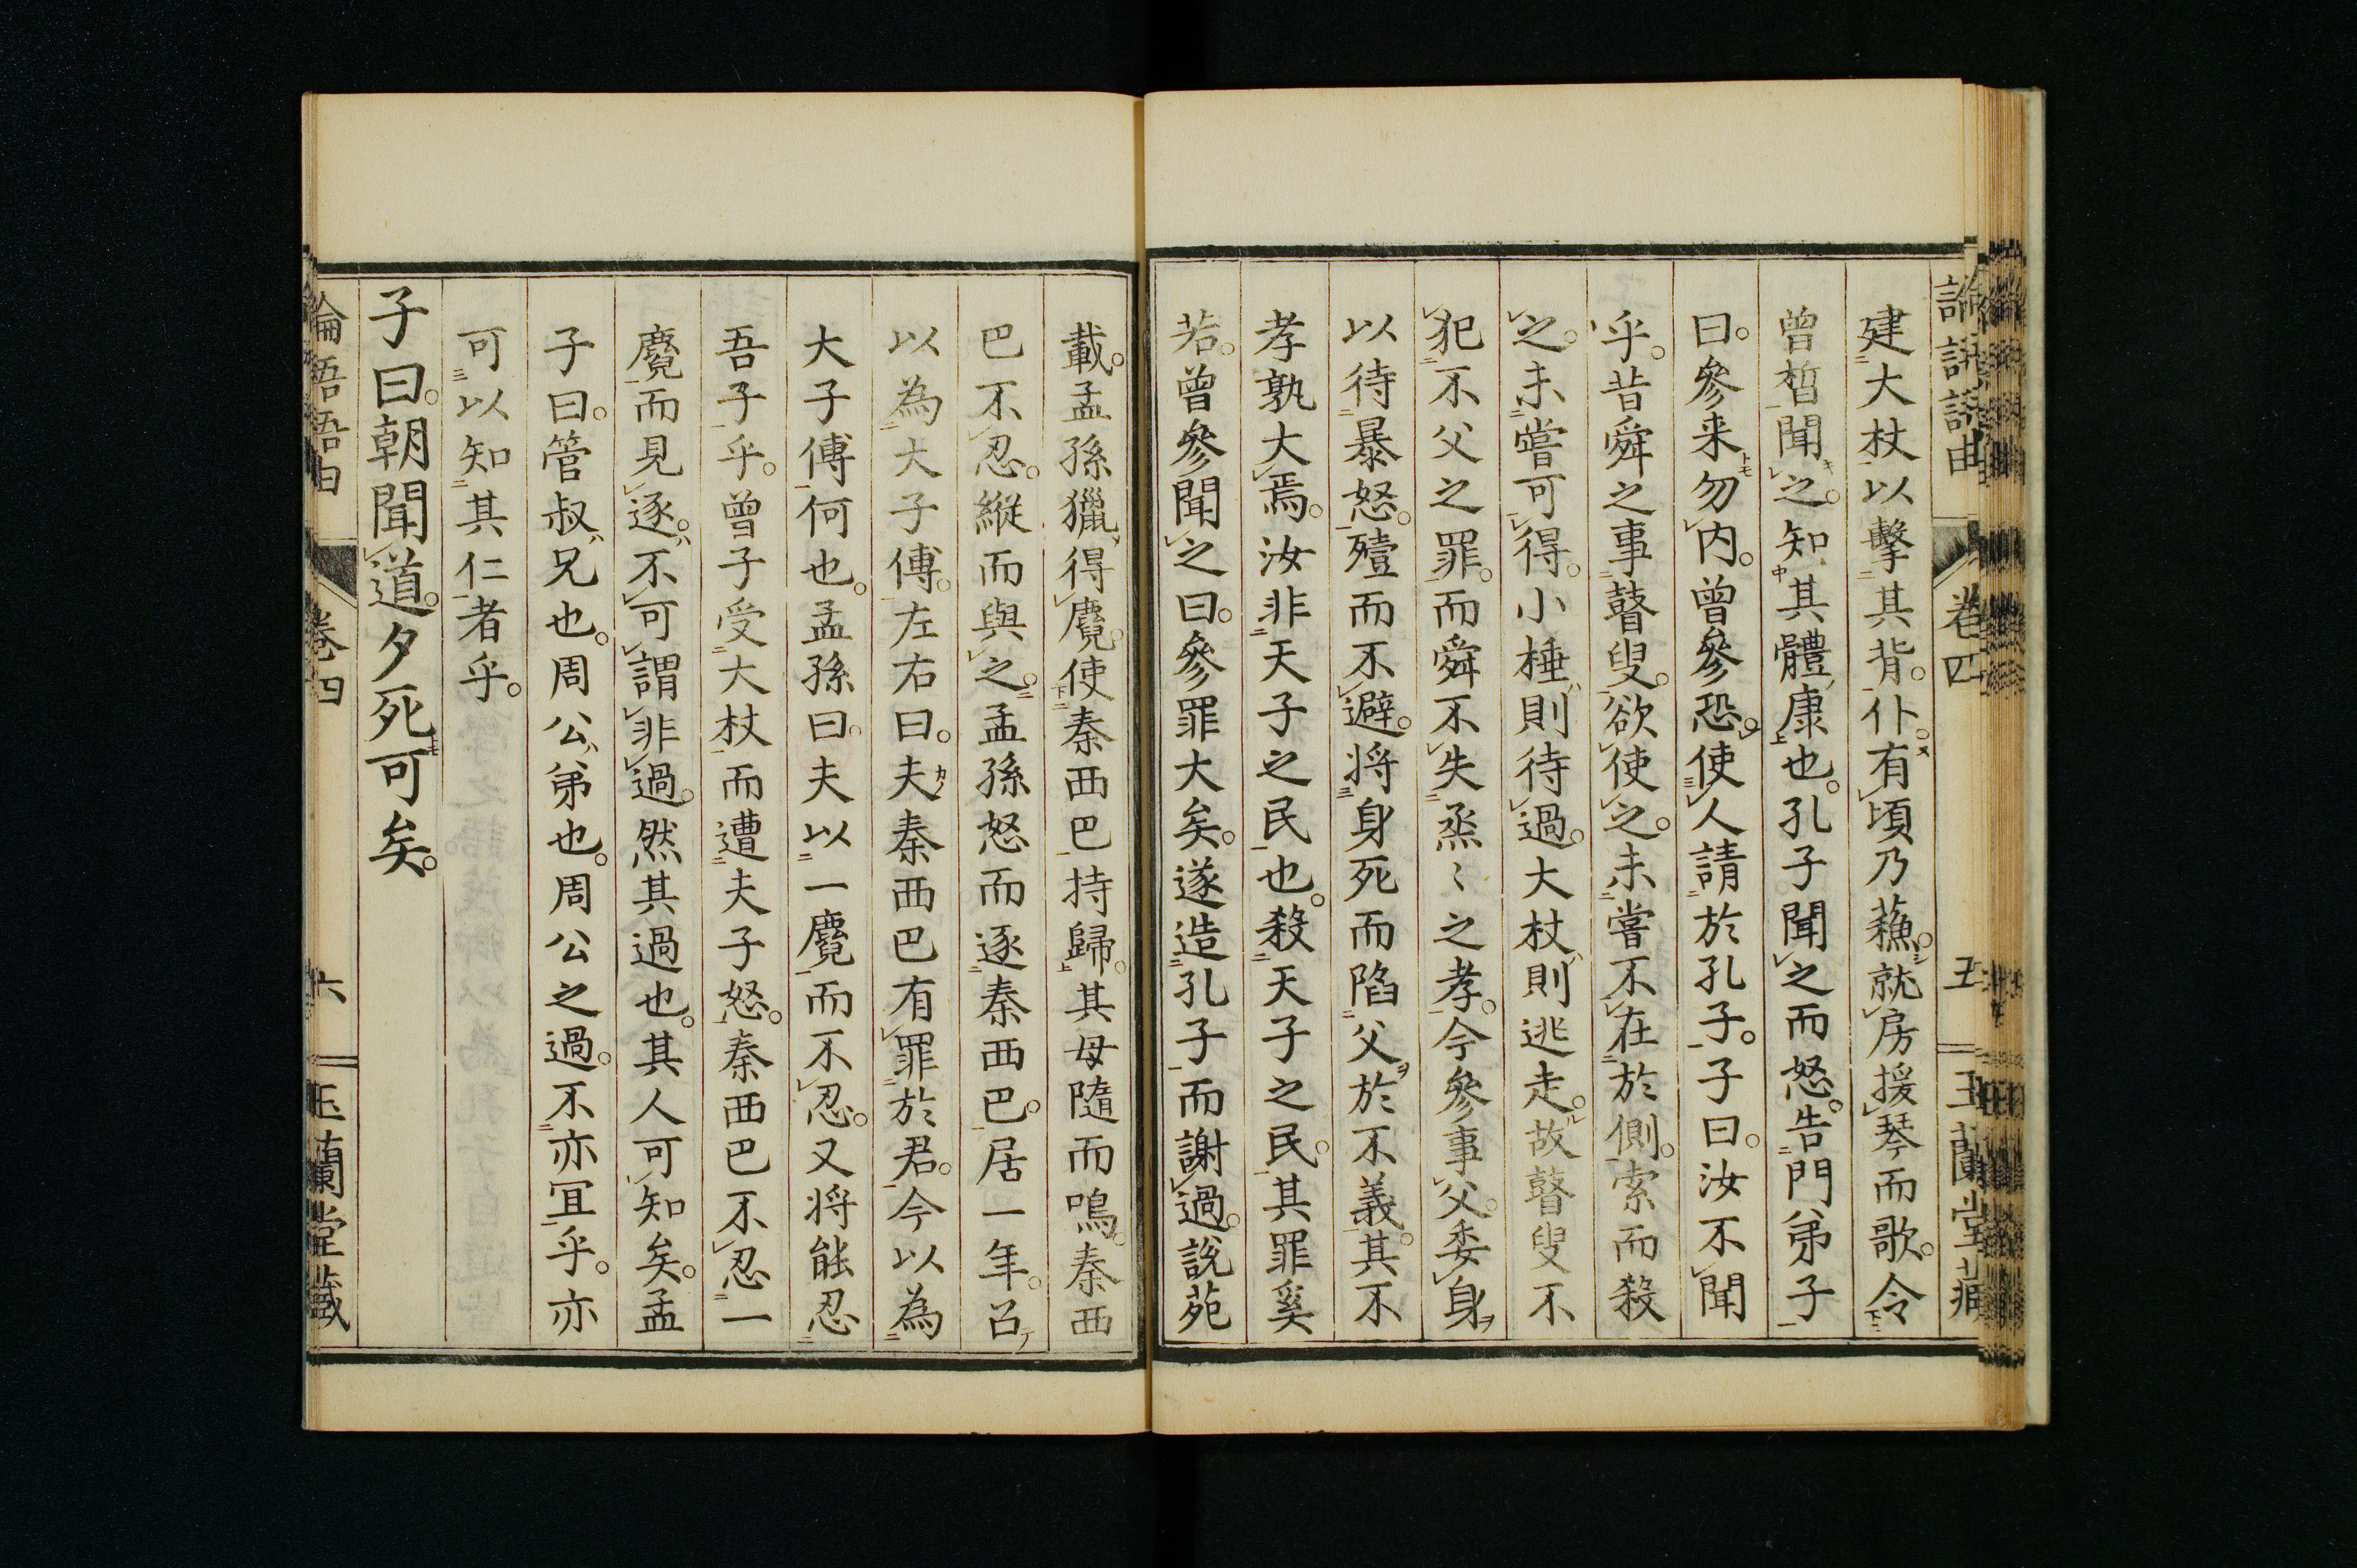 建大杖以擊其背。仆。有頃乃蘓。就房援琴而歌。令
曾皙聞之。知其體康也。孔子聞之而怒。告門弟子
曰。參来勿内。曾參恐。使人請於孔子。子曰。汝不聞
乎。昔舜之事瞽叟。欲使之。未嘗不在於側。索而殺
之。未嘗可得。小棰則待過。大杖則逃走。故瞽叟不
犯不父之罪。而舜不失烝〻之孝。今參事父。委身
以待暴怒。殪而不避。将身死而陷父於不義。其不
孝孰大焉。汝非天子之民也。殺天子之民。其罪奚
若。曾參聞之曰。參罪大矣。遂造孔子而謝過。說苑
載。孟孫獵得麑。使秦西巴持歸。其母隨而鳴。秦西
巴不忍。縱而與之。孟孫怒而逐秦西巴。居一年。召
以為大子傅。左右曰。夫秦西巴有罪於君。今以為
大子傅何也。孟孫曰。夫以一麑而不忍。又将能忍
吾子乎。曾子受大杖而遭夫子怒。秦西巴不忍一
麑而見逐。不可謂非過。然其過也。其人可知矣。孟
子曰。管叔兄也。周公弟也。周公之過。不亦冝乎。亦
可以知其仁者乎。
子曰。朝聞道。夕死可矣。
論語語由 卷四 六 玉蘭堂藏